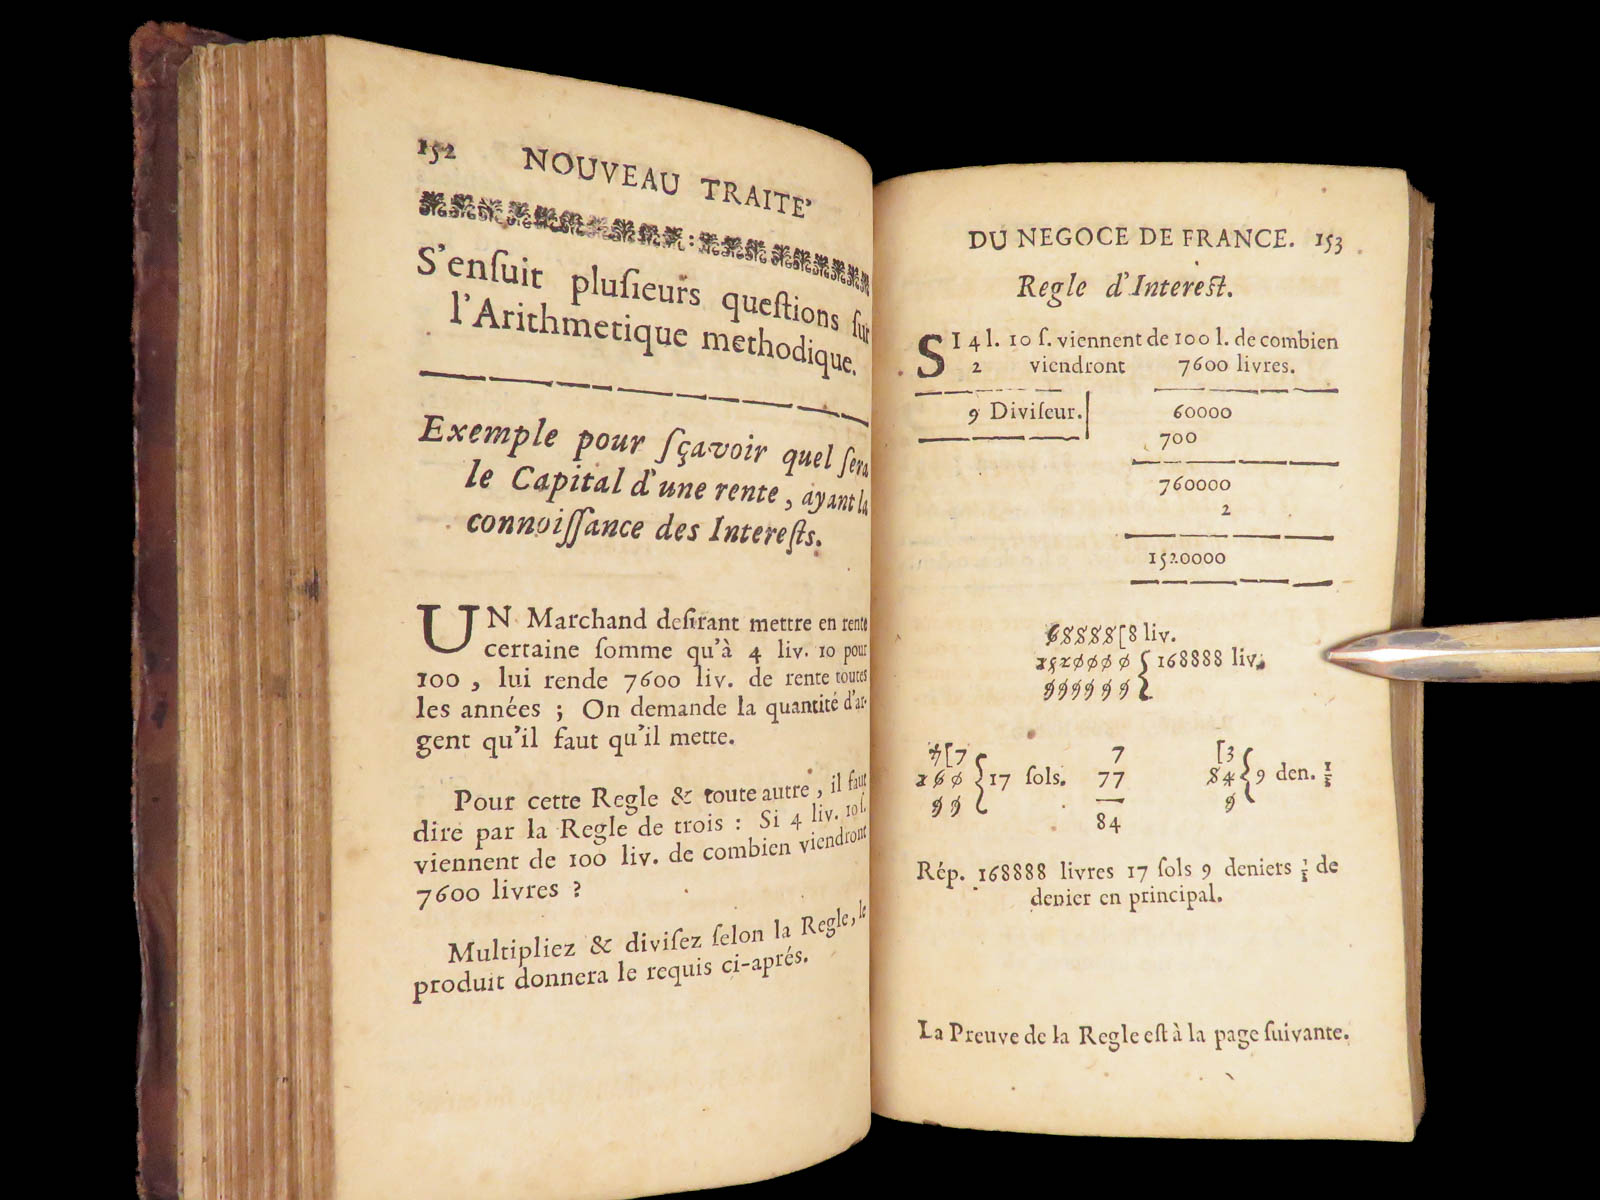 152 NOUVEAU TRAITE'
S'enſuit pluſieurs queſtions ſur
l'Arithmetique methodique.
Exemple pour ſçavoir quel ſera
le Capital d'une rente, ayant la
connoiſſance des Intereſts.
UN Marchand deſirant mettre en rente
certaine ſomme qu'à 4 liv. 10 pour
100, lui rende 7600 liv. de rente toutes
les années; On demande la quantité d'ar-
gent qu'il faut qu'il mette.
Pour cette Regle & toute autre, il faut
dire par la Regle de trois: Si 4 liv. 10 ſ.
viennent de 100 liv. de combien viendront
7600 livres?
Multipliez & diviſez ſelon la Regle, le
produit donnera le requis ci-aprés.
DU NEGOCE DE FRANCE. 153
Regle d'Intereſt.
SI 4 l. 10 ſ. viennent de 100 l. de combien
2 viendront 7600 livres.
9 Diviſeur. 60000
700
760000
2
1520000
68888[8 liv.
1520000{168888 liv.
999999
4[7 7 [3
160{17 ſols. 77 84{9 den. 1/3
99 9
84
Rép. 168888 livres 17 ſols 9 deniers 1/3 de
denier en principal.
La Preuve de la Regle eſt à la page ſuivante.